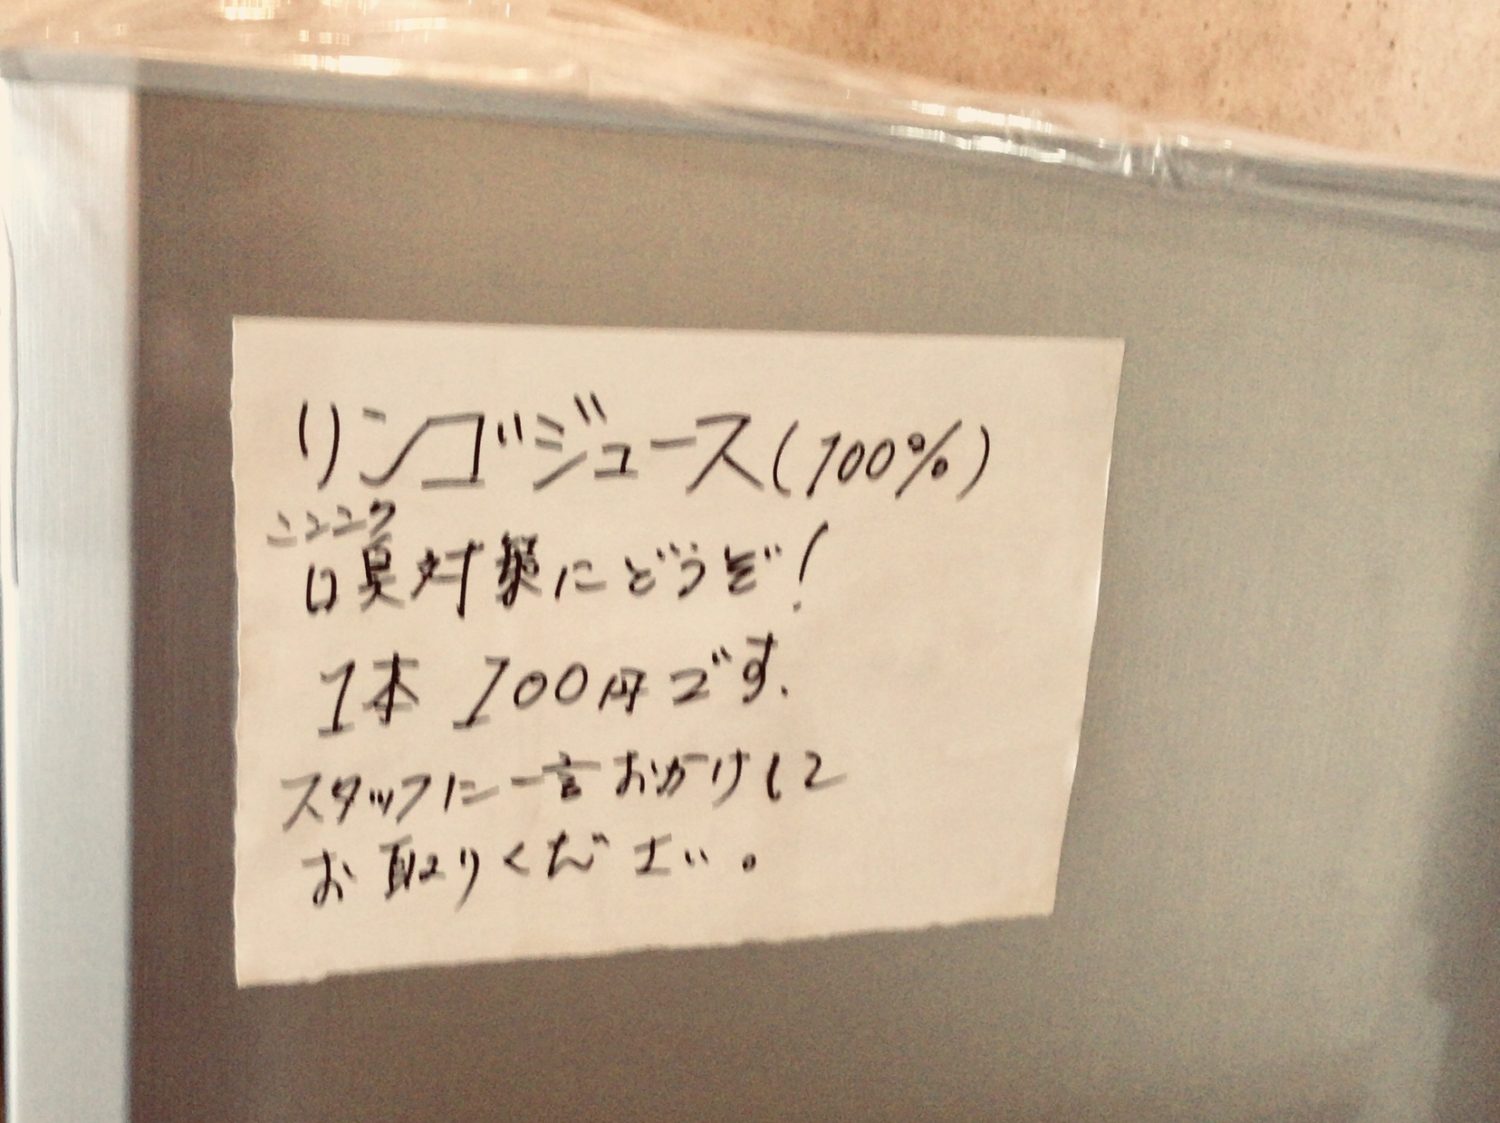 リンゴジュース(100%)
ニンニク
口臭対策にどうぞ!
1本 100円です.
スタッフに一言おかけして
お取りください。